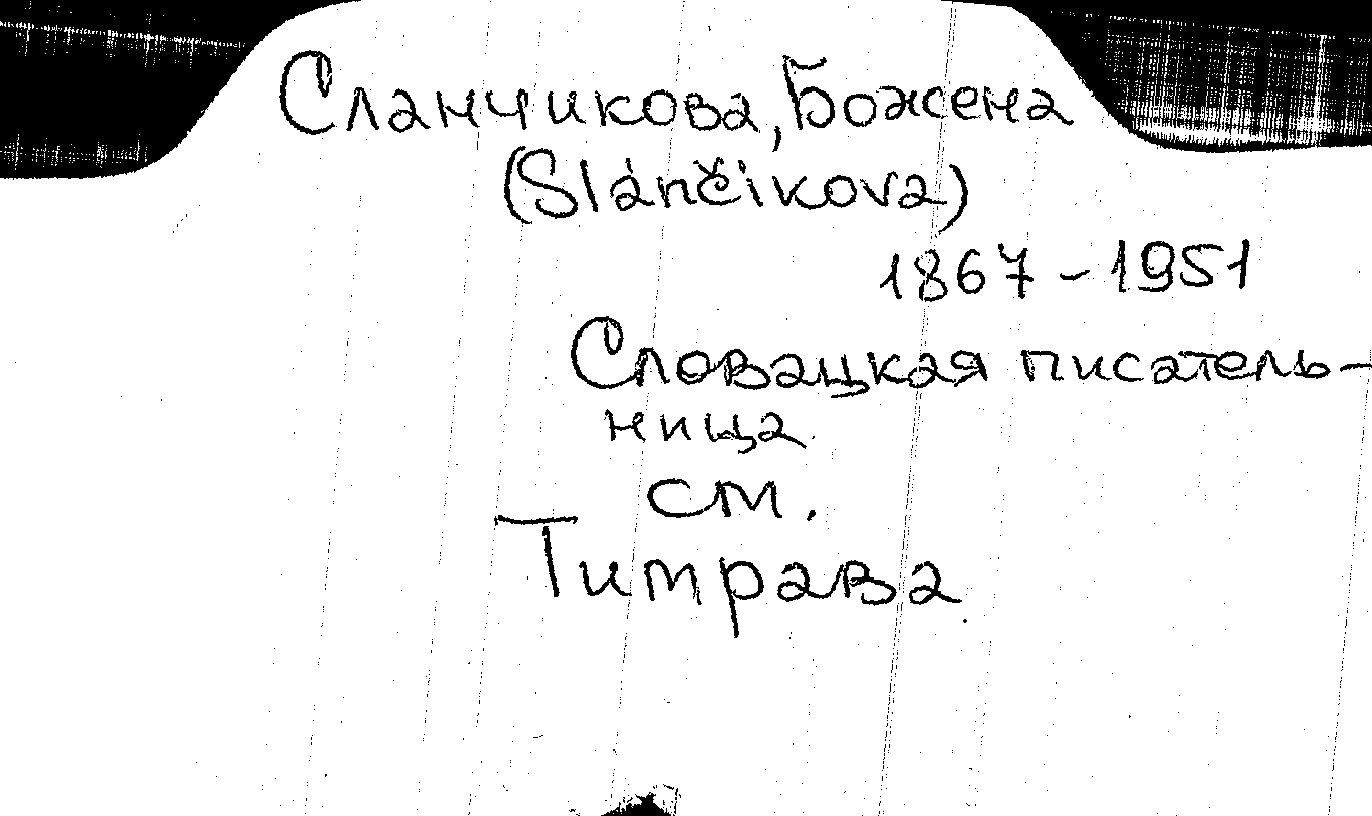 Сланчикова, Божена
(Slánčikova)
1867-1951
Словацкая писатель-
ница
см.
Тимрава